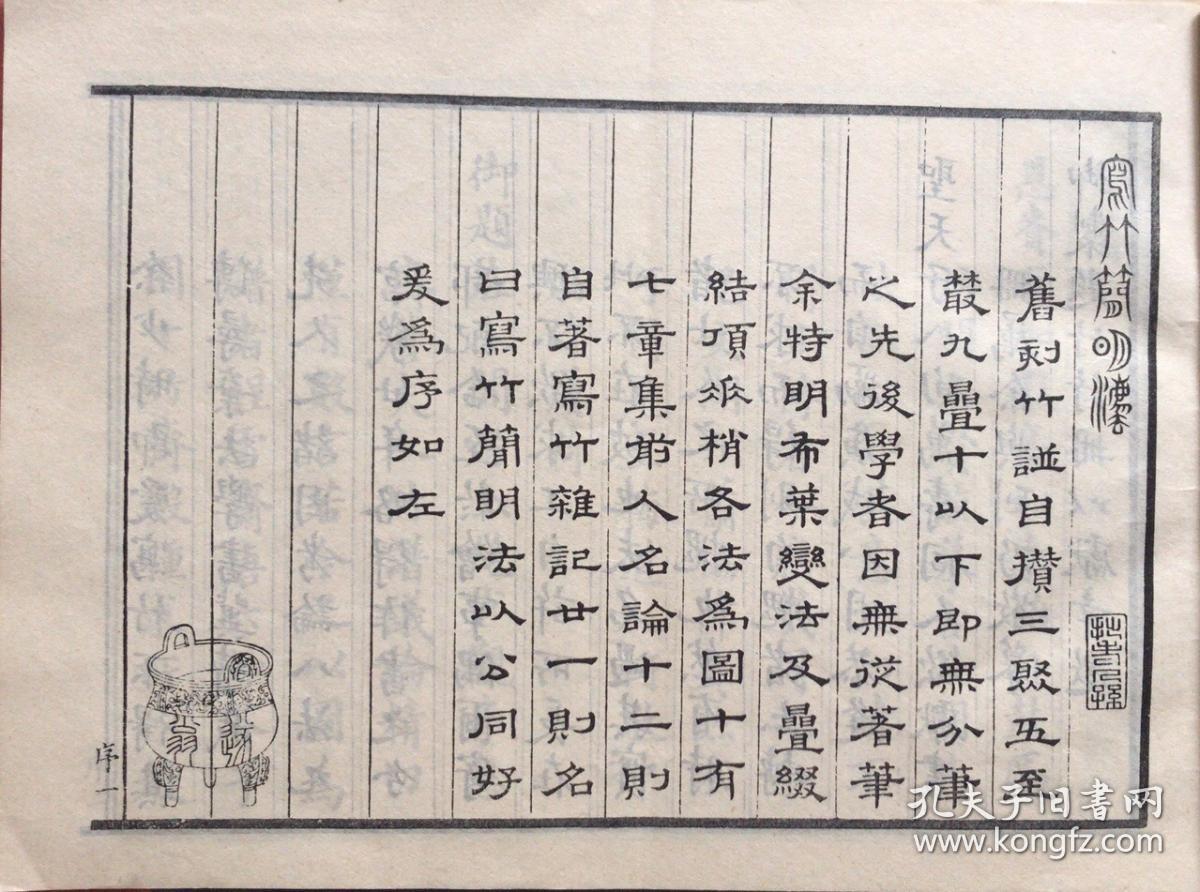 寫竹簡明法
舊刻竹譜自攢三聚五至
叢九疊十以下即無分筆
之先後學者因無從著筆
余特明布葉變法及疊綴
結頂垂梢各法爲圖十有
七章集前人名論十二則
自著寫竹雜記廿一則名
曰寫竹簡明法以公同好
爰爲序如左
序一
孔夫子旧书网
www.kongfz.com